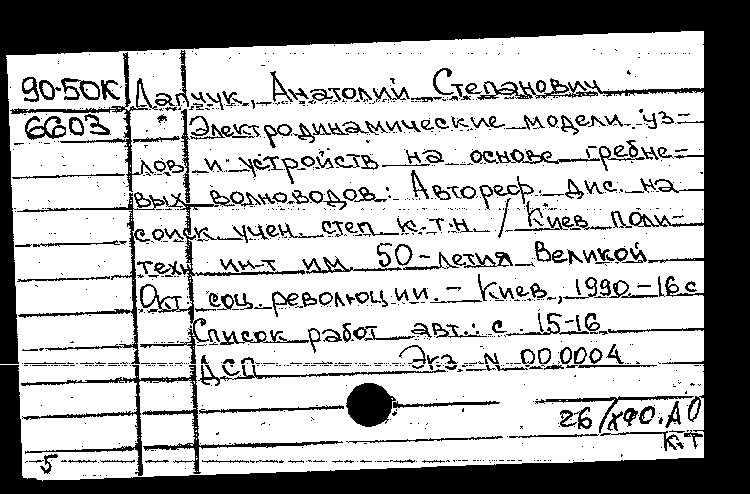 90-50К Лапчук, Анатолий Степанович
6603 Электродинамические модели уз-
лов и устройств на основе гребне-
вых волноводов: Автореф. дис. на
соиск. учен. степ к.т.н. / Киев поли-
техн ин-т им. 50-летия Великой
Окт. соц. революции. - Киев, 1990 - 16 с
Список работ авт.: с 15-16
ДСП Экз N 000004
26/
К.Т
5